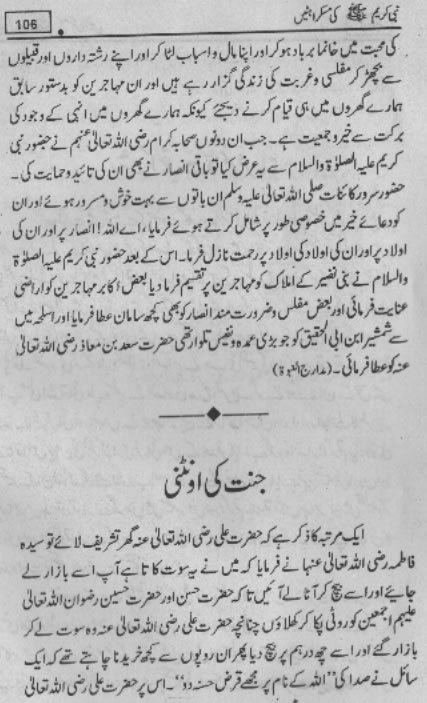 نبی کریم ﷺ کی مسکراہٹیں
106
کی محبت میں خانماں برباد ہو کر اور اپنا مال و اسباب لٹا کر اور اپنے رشتہ داروں اور قبیلوں
سے بچھڑ کر مفلسی و غربت کی زندگی گزار رہے ہیں اور ان مہاجرین کو بدستور سابق
ہمارے گھروں میں ہی قیام کرنے دیجئے کیونکہ ہمارے گھروں میں انہی کے وجود کی
برکت سے خیر و جمعیت ہے۔ جب ان دونوں صحابہ کرام رضی اللہ تعالیٰ عنہم نے حضور نبی
کریم علیہ الصلوٰۃ والسلام سے یہ عرض کیا تو باقی انصار نے بھی ان کی تائید و حمایت کی۔
حضور سرور کائنات صلی اللہ تعالیٰ علیہ وسلم ان باتوں سے بہت خوش و مسرور ہوئے اور ان
کو دعائے خیر میں خصوصی طور پر شامل کرتے ہوئے فرمایا، اے اللہ! انصار پر اور ان کی
اولاد پر اور ان کی اولاد کی اولاد پر رحمت نازل فرما۔ اس کے بعد حضور نبی کریم علیہ الصلوٰۃ
والسلام نے بنی نضیر کے املاک کو مہاجرین پر تقسیم فرما دیا بعض اکابر مہاجرین کو اراضی
عنایت فرمائی اور بعض مفلس و ضرورت مند انصار کو بھی کچھ سامان عطا فرمایا اور اسلحہ میں
سے شمشیر ابن ابی الحقیق کو جو بڑی عمدہ و نفیس تلوار تھی حضرت سعد بن معاذ رضی اللہ تعالیٰ
عنہ کو عطا فرمائی۔ (مدارج النبوۃ)
جنت کی اونٹنی
ایک مرتبہ کا ذکر ہے کہ حضرت علی رضی اللہ تعالیٰ عنہ گھر تشریف لائے تو سیدہ
فاطمہ رضی اللہ تعالیٰ عنہا نے فرمایا کہ میں نے یہ سوت کا تا ہے آپ اسے بازار لے
جایئے اور اسے بیچ کر آٹا لے آئیں تاکہ حضرت حسن اور حضرت حسین رضوان اللہ تعالیٰ
علیہم اجمعین کو روٹی پکا کر کھلاؤں چنانچہ حضرت علی رضی اللہ تعالیٰ عنہ وہ سوت لے کر
بازار گئے اور اسے چھ درہم پر بیچ دیا پھر ان روپوں سے کچھ خریدنا چاہتے تھے کہ ایک
سائل نے صدا کی ”اللہ کے نام پر مجھے قرض حسنہ دو“۔ اس پر حضرت علی رضی اللہ تعالیٰ